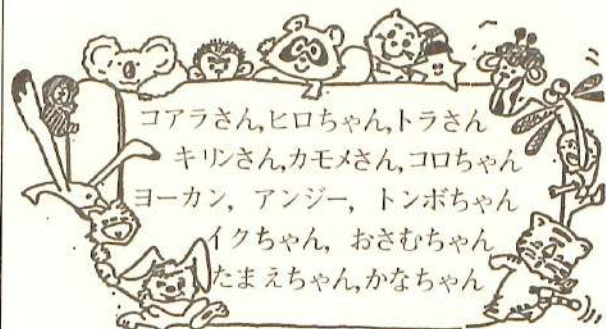 コアラさん,ヒロちゃん,トラさん
キリンさん,カモメさん,コロちゃん
ヨーカン, アンジー, トンボちゃん
イクちゃん, おさむちゃん
たまえちゃん,かなちゃん